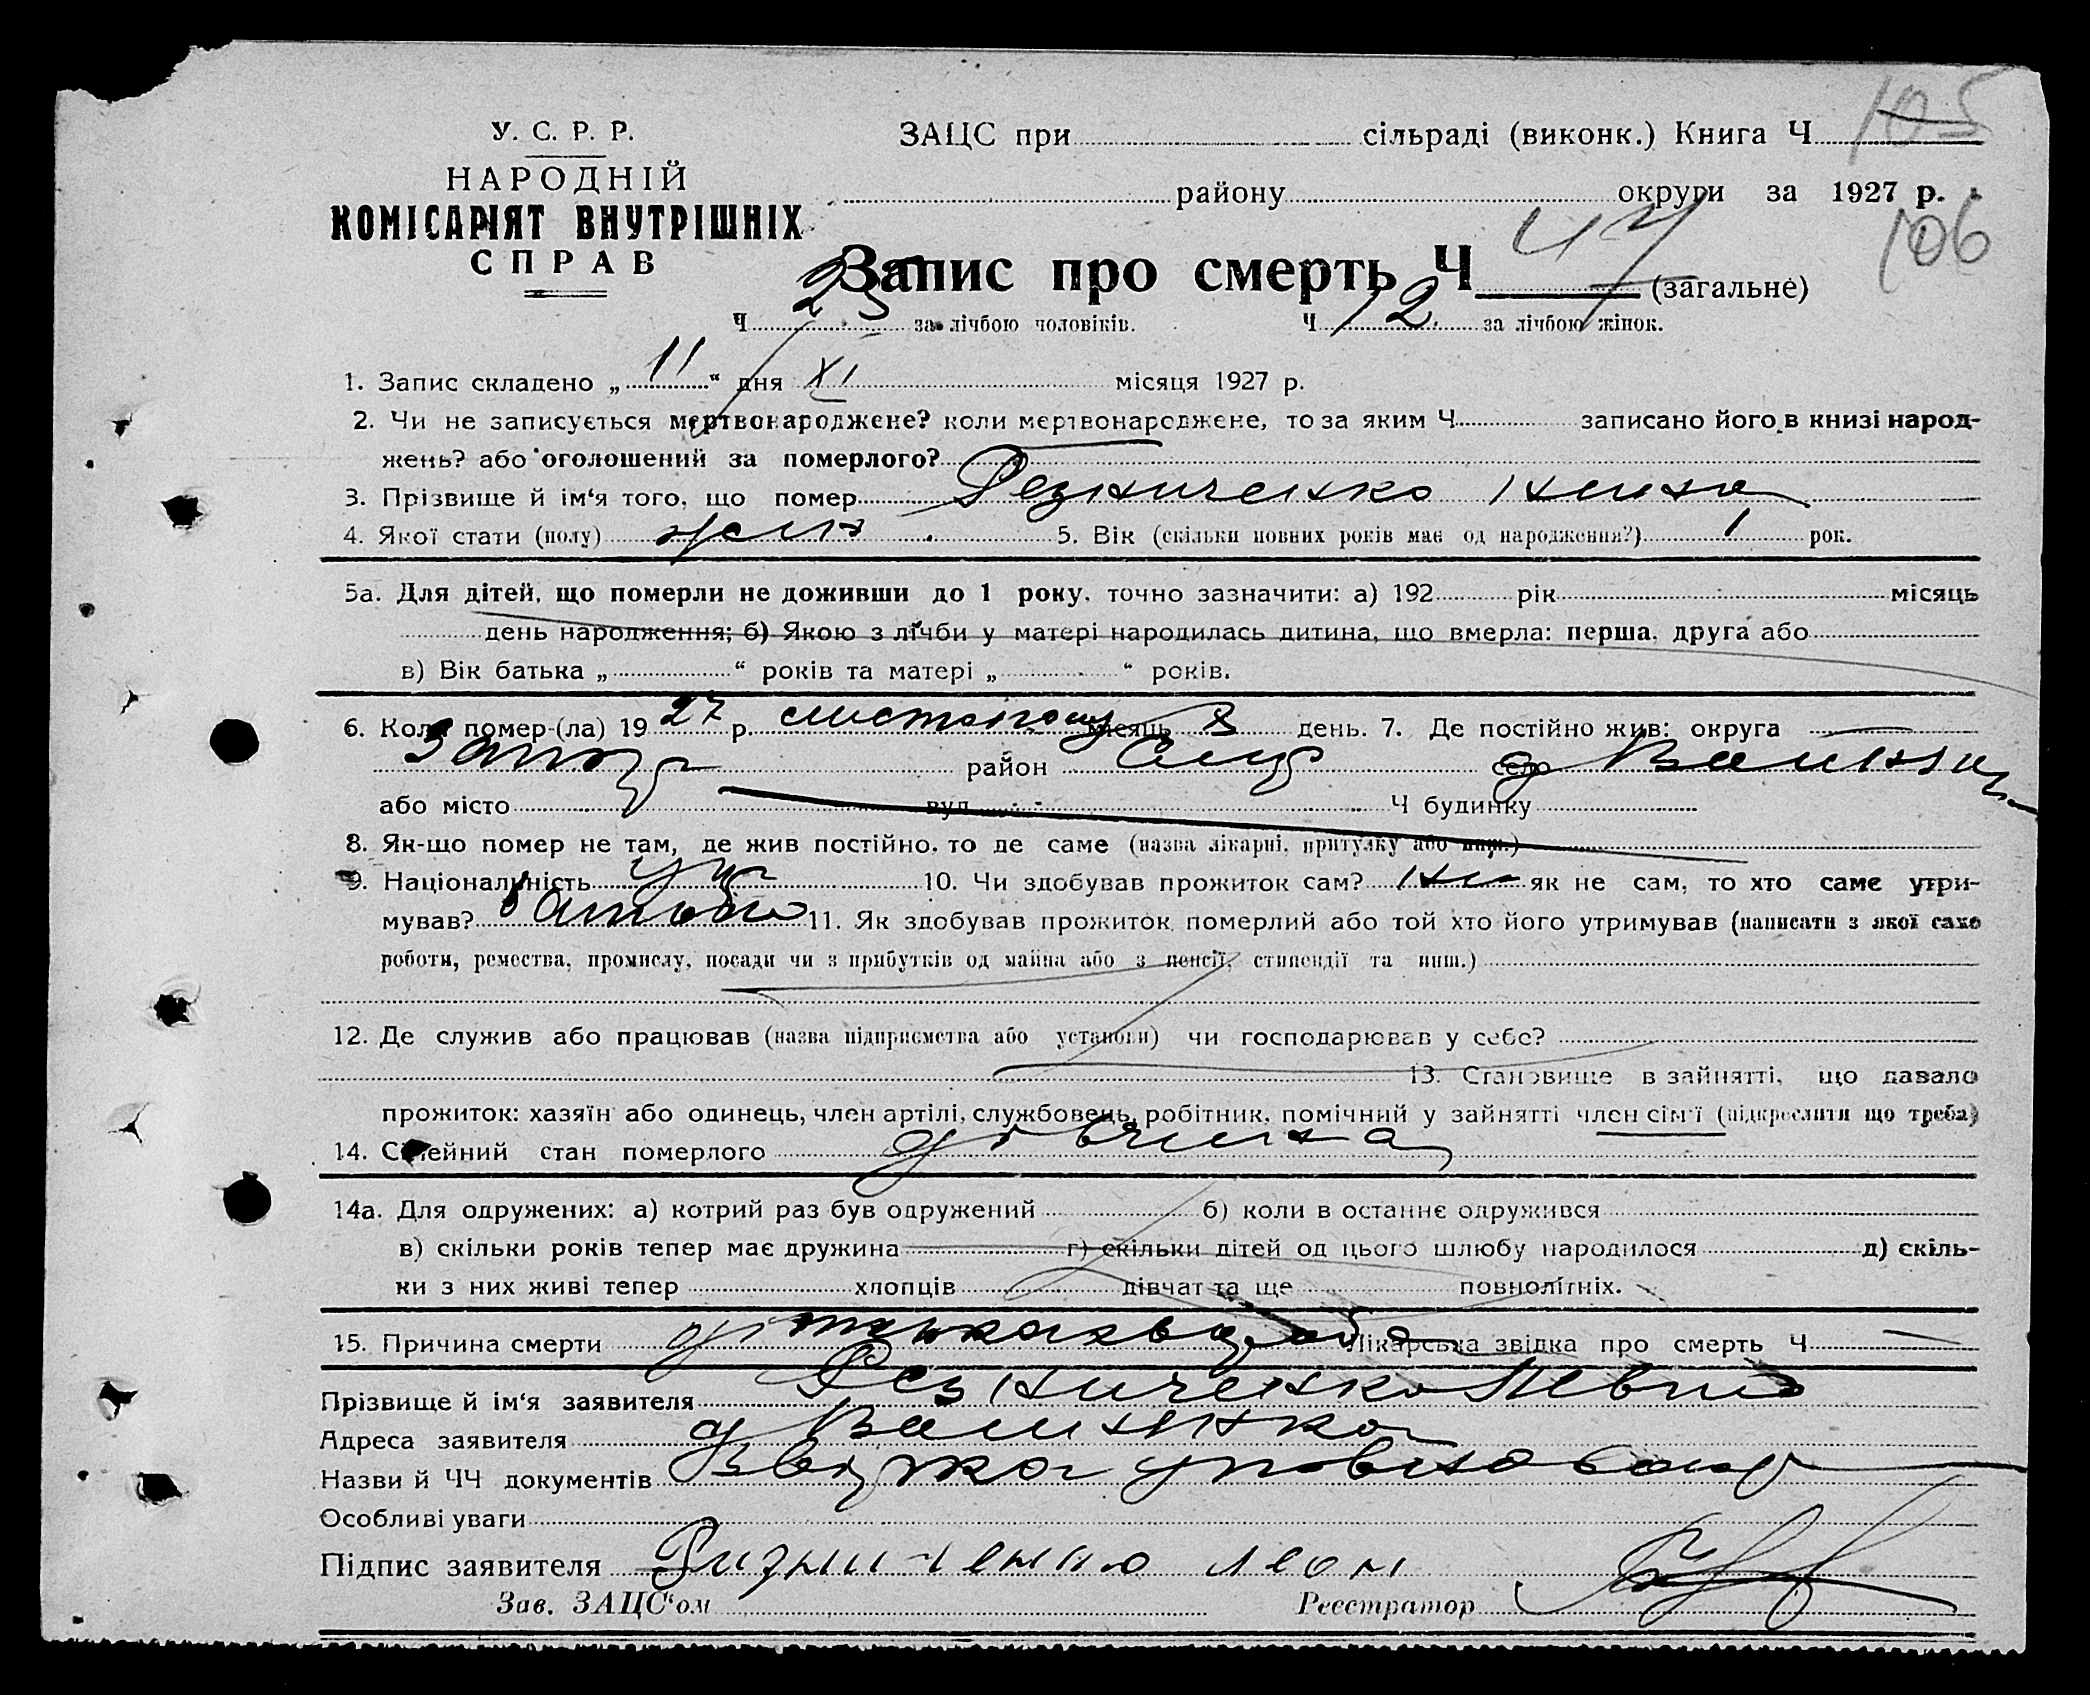 105
У. С. Р. Р.
ЗАЦС при сільраді (виконк.) Книга Ч
НАРОДНІЙ
району округи за 1927 р.
КОМІСАРІЯТ ВНУТРІШНІХ
106
СПРАВ
Запис про смерть Ч 47 (загальне)
Ч 25 за лічбою чоловіків. Ч 12 за лічбою жінок.
1. Запис складено „ 11 “ дня XI місяця 1927 р.
2. Чи не записується мертвонароджене? коли мертвонароджене, то за яким Ч записано його в книзі народ-
жень? або оголошений за померлого?
3. Прізвище й ім‘я того, що помер Резниченко Нина
4. Якої стати (полу) жін 5. Вік (скільки повних років має од народження?) 1 рок.
5а. Для дітей, що померли не доживши до 1 року, точно зазначити: а) 192 рік місяць
день народження; б) Якою з лічби у матері народилась дитина, що вмерла: перша, друга або
в) Вік батька „ “ років та матері „ “ років.
6. Коли помер-(ла) 1927 р. листопаду місяць 8 день. 7. Де постійно жив: округа
Запор район село
або місто вул. Ч будинку
8. Як-що помер не там, де жив постійно, то де саме (назва лікарні, притулку або инш.)
9. Національність укр 10. Чи здобував прожиток сам? ні як не сам, то хто саме утри-
мував? батько 11. Як здобував прожиток померлий або той хто його утримував (написати з якої саме
роботи, ремества, промислу, посади чи з прибутків од майна або з пенсії, стипендії та инш.)
12. Де служив або працював (назва підприємства або установи) чи господарював у себе?
13. Становище в зайнятті, що давало
прожиток: хазяїн або одинець, член артілі, службовець, робітник, помічний у зайнятті член сім‘ї (підкреслити що треба)
14. Сімейний стан померлого дівчина
14а. Для одружених: а) котрий раз був одружений б) коли в останнє одружився
в) скільки років тепер має дружина г) скільки дітей од цього шлюбу народилося д) скіль-
ки з них живі тепер хлопців дівчат та ще повнолітніх.
15. Причина смерти Лікарська звідка про смерть Ч
Прізвище й ім‘я заявителя Резниченко
Адреса заявителя
Назви й ЧЧ документів
Особливі уваги
Підпис заявителя Ризниченко леон
Зав. ЗАЦС‘ом Реєстратор